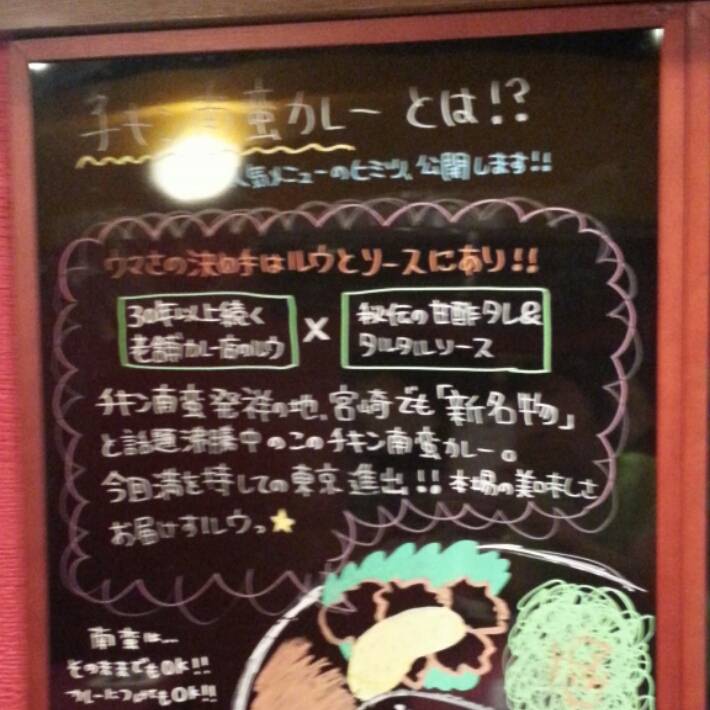 チキン南蛮カレーとは!?
人気メニューのヒミツ、公開します!!
ウマさの決め手はルウとソースにあり!!
30年以上続く
老舗カレー店のルウ
×
秘伝の甘酢タレ&
タルタルソース
チキン南蛮発祥の地、宮崎でも「新名物」
と話題沸騰中のこのチキン南蛮カレー。
今回満を持しての東京進出!!本場の美味しさ
お届けすルウっ★
南蛮は…
そのままでもOK!!
カレーにつけてもOK!!